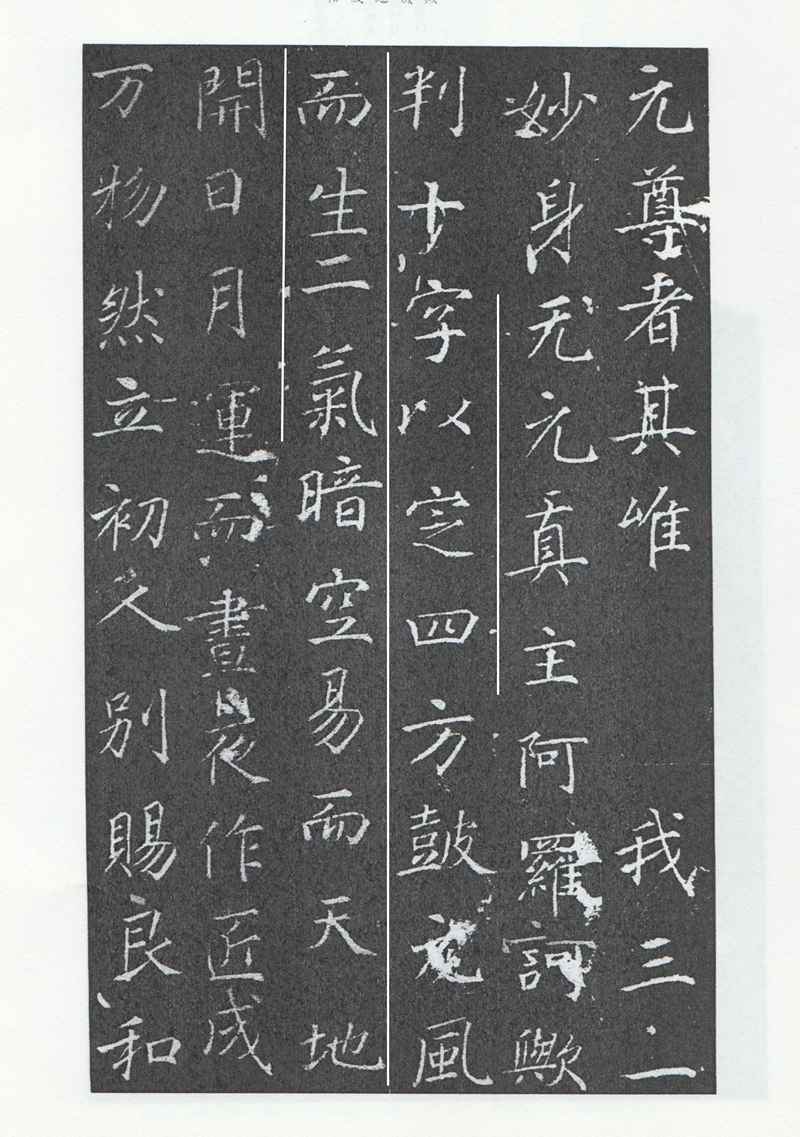 元尊者其唯 我三一
妙身无元真主阿羅訶歟
判十字以定四方鼓元風
而生二氣暗空易而天地
開日月運而晝夜作匠成
万物然立初人別賜良和